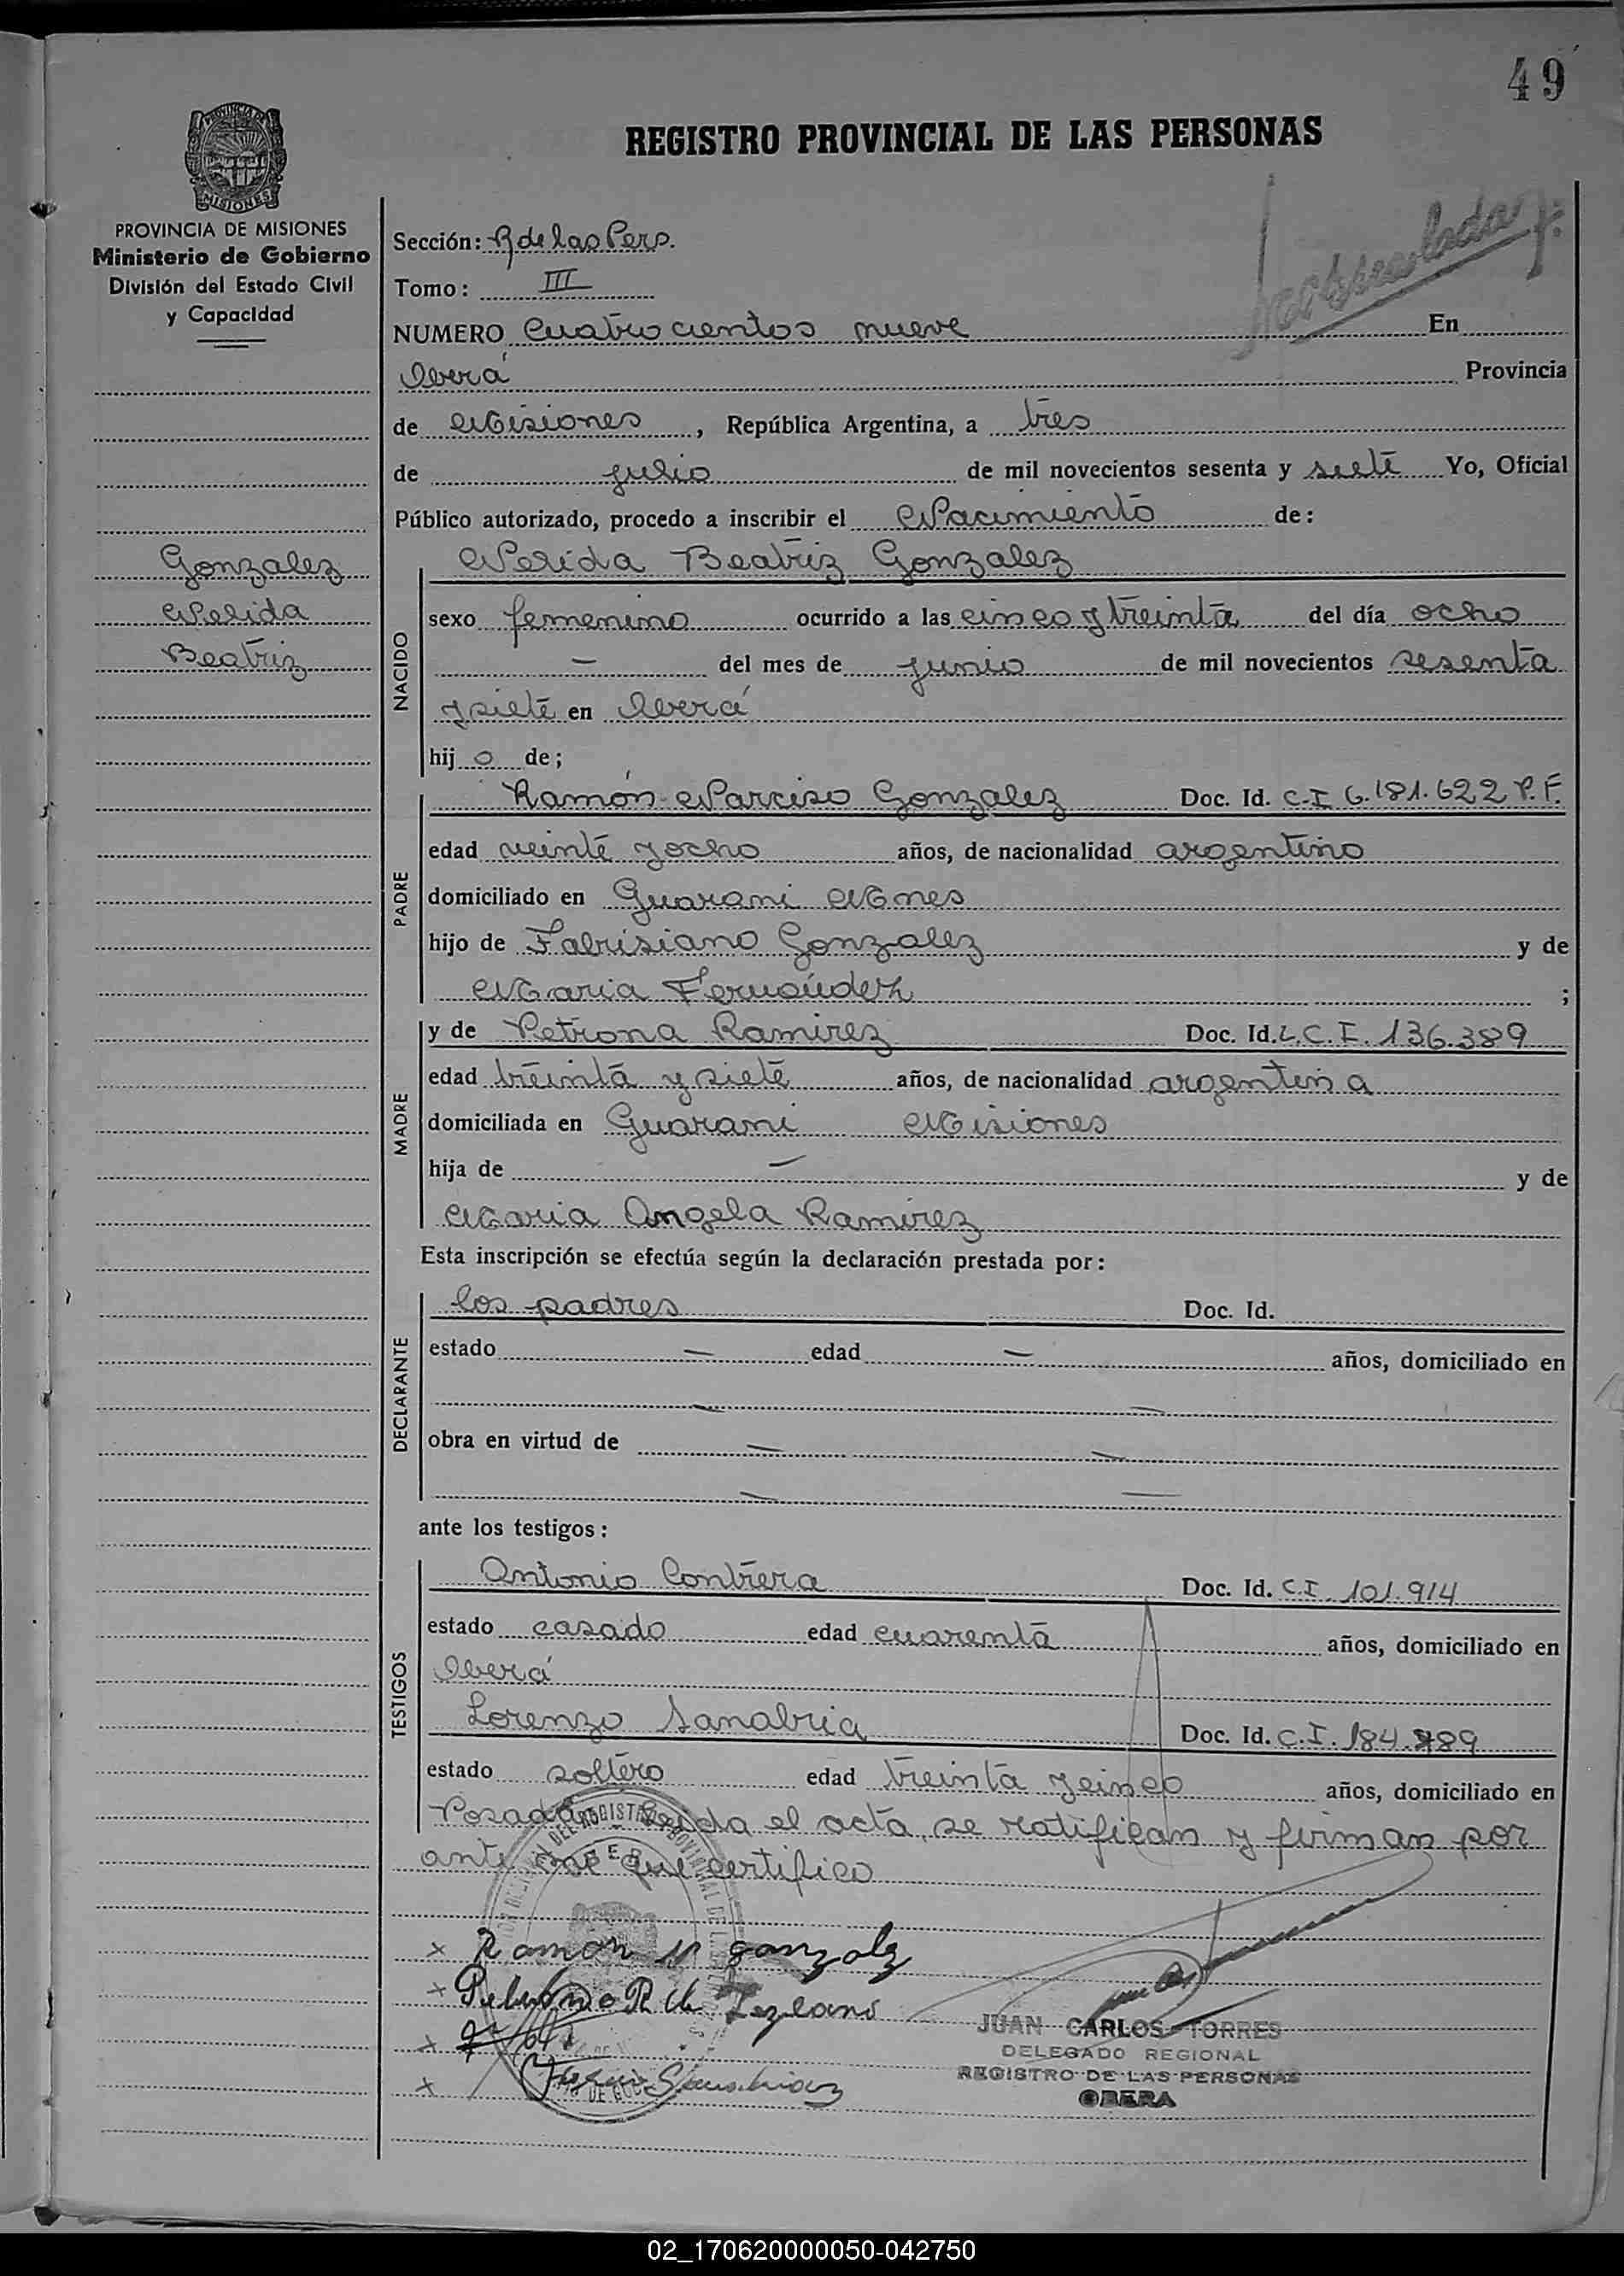 49
REGISTRO PROVINCIAL DE LAS PERSONAS
PROVINCIA DE MISIONES
Ministerio de Gobierno
División del Estado Civil
y Capacidad
Sección: R de las Pers.
Tomo: III
NUMERO Cuatrocientos nueve En
Oberá Provincia
de Misiones, República Argentina, a tres
de julio de mil novecientos sesenta y siete Yo, Oficial
Público autorizado, procedo a inscribir el Nacimiento de:
Gonzalez
Nelida
Beatriz
NACIDO
Nelida Beatriz Gonzalez
sexo femenino ocurrido a las cinco y treinta del día ocho
— del mes de junio de mil novecientos sesenta
y siete en Oberá
hij o de;
PADRE
Ramón Narciso Gonzalez Doc. Id. C.I 6.181.622 P.F.
edad veinte y ocho años, de nacionalidad argentino
domiciliado en Guarani Mnes
hijo de Fabrisiano Gonzalez y de
Maria Fernández ;
MADRE
y de Petrona Ramirez Doc. Id. L.C.I. 136.389
edad treinta y siete años, de nacionalidad argentina
domiciliada en Guarani Misiones
hija de — y de
Maria Angela Ramirez
Esta inscripción se efectúa según la declaración prestada por:
DECLARANTE
los padres Doc. Id.
estado — edad — años, domiciliado en
— —
obra en virtud de — —
— —
ante los testigos:
TESTIGOS
Antonio Contrera Doc. Id. C.I. 101.914
estado casado edad cuarenta años, domiciliado en
Oberá
Lorenzo Sanabria Doc. Id. C.I. 184.789
estado soltero edad treinta y cinco años, domiciliado en
Posadas Leida el acta, se ratifican y firman por
ante mí que certifico
x Ramón N gonzalz
x
x
x
JUAN CARLOS TORRES
DELEGADO REGIONAL
REGISTRO DE LAS PERSONAS
OBERA
02_170620000050-042750